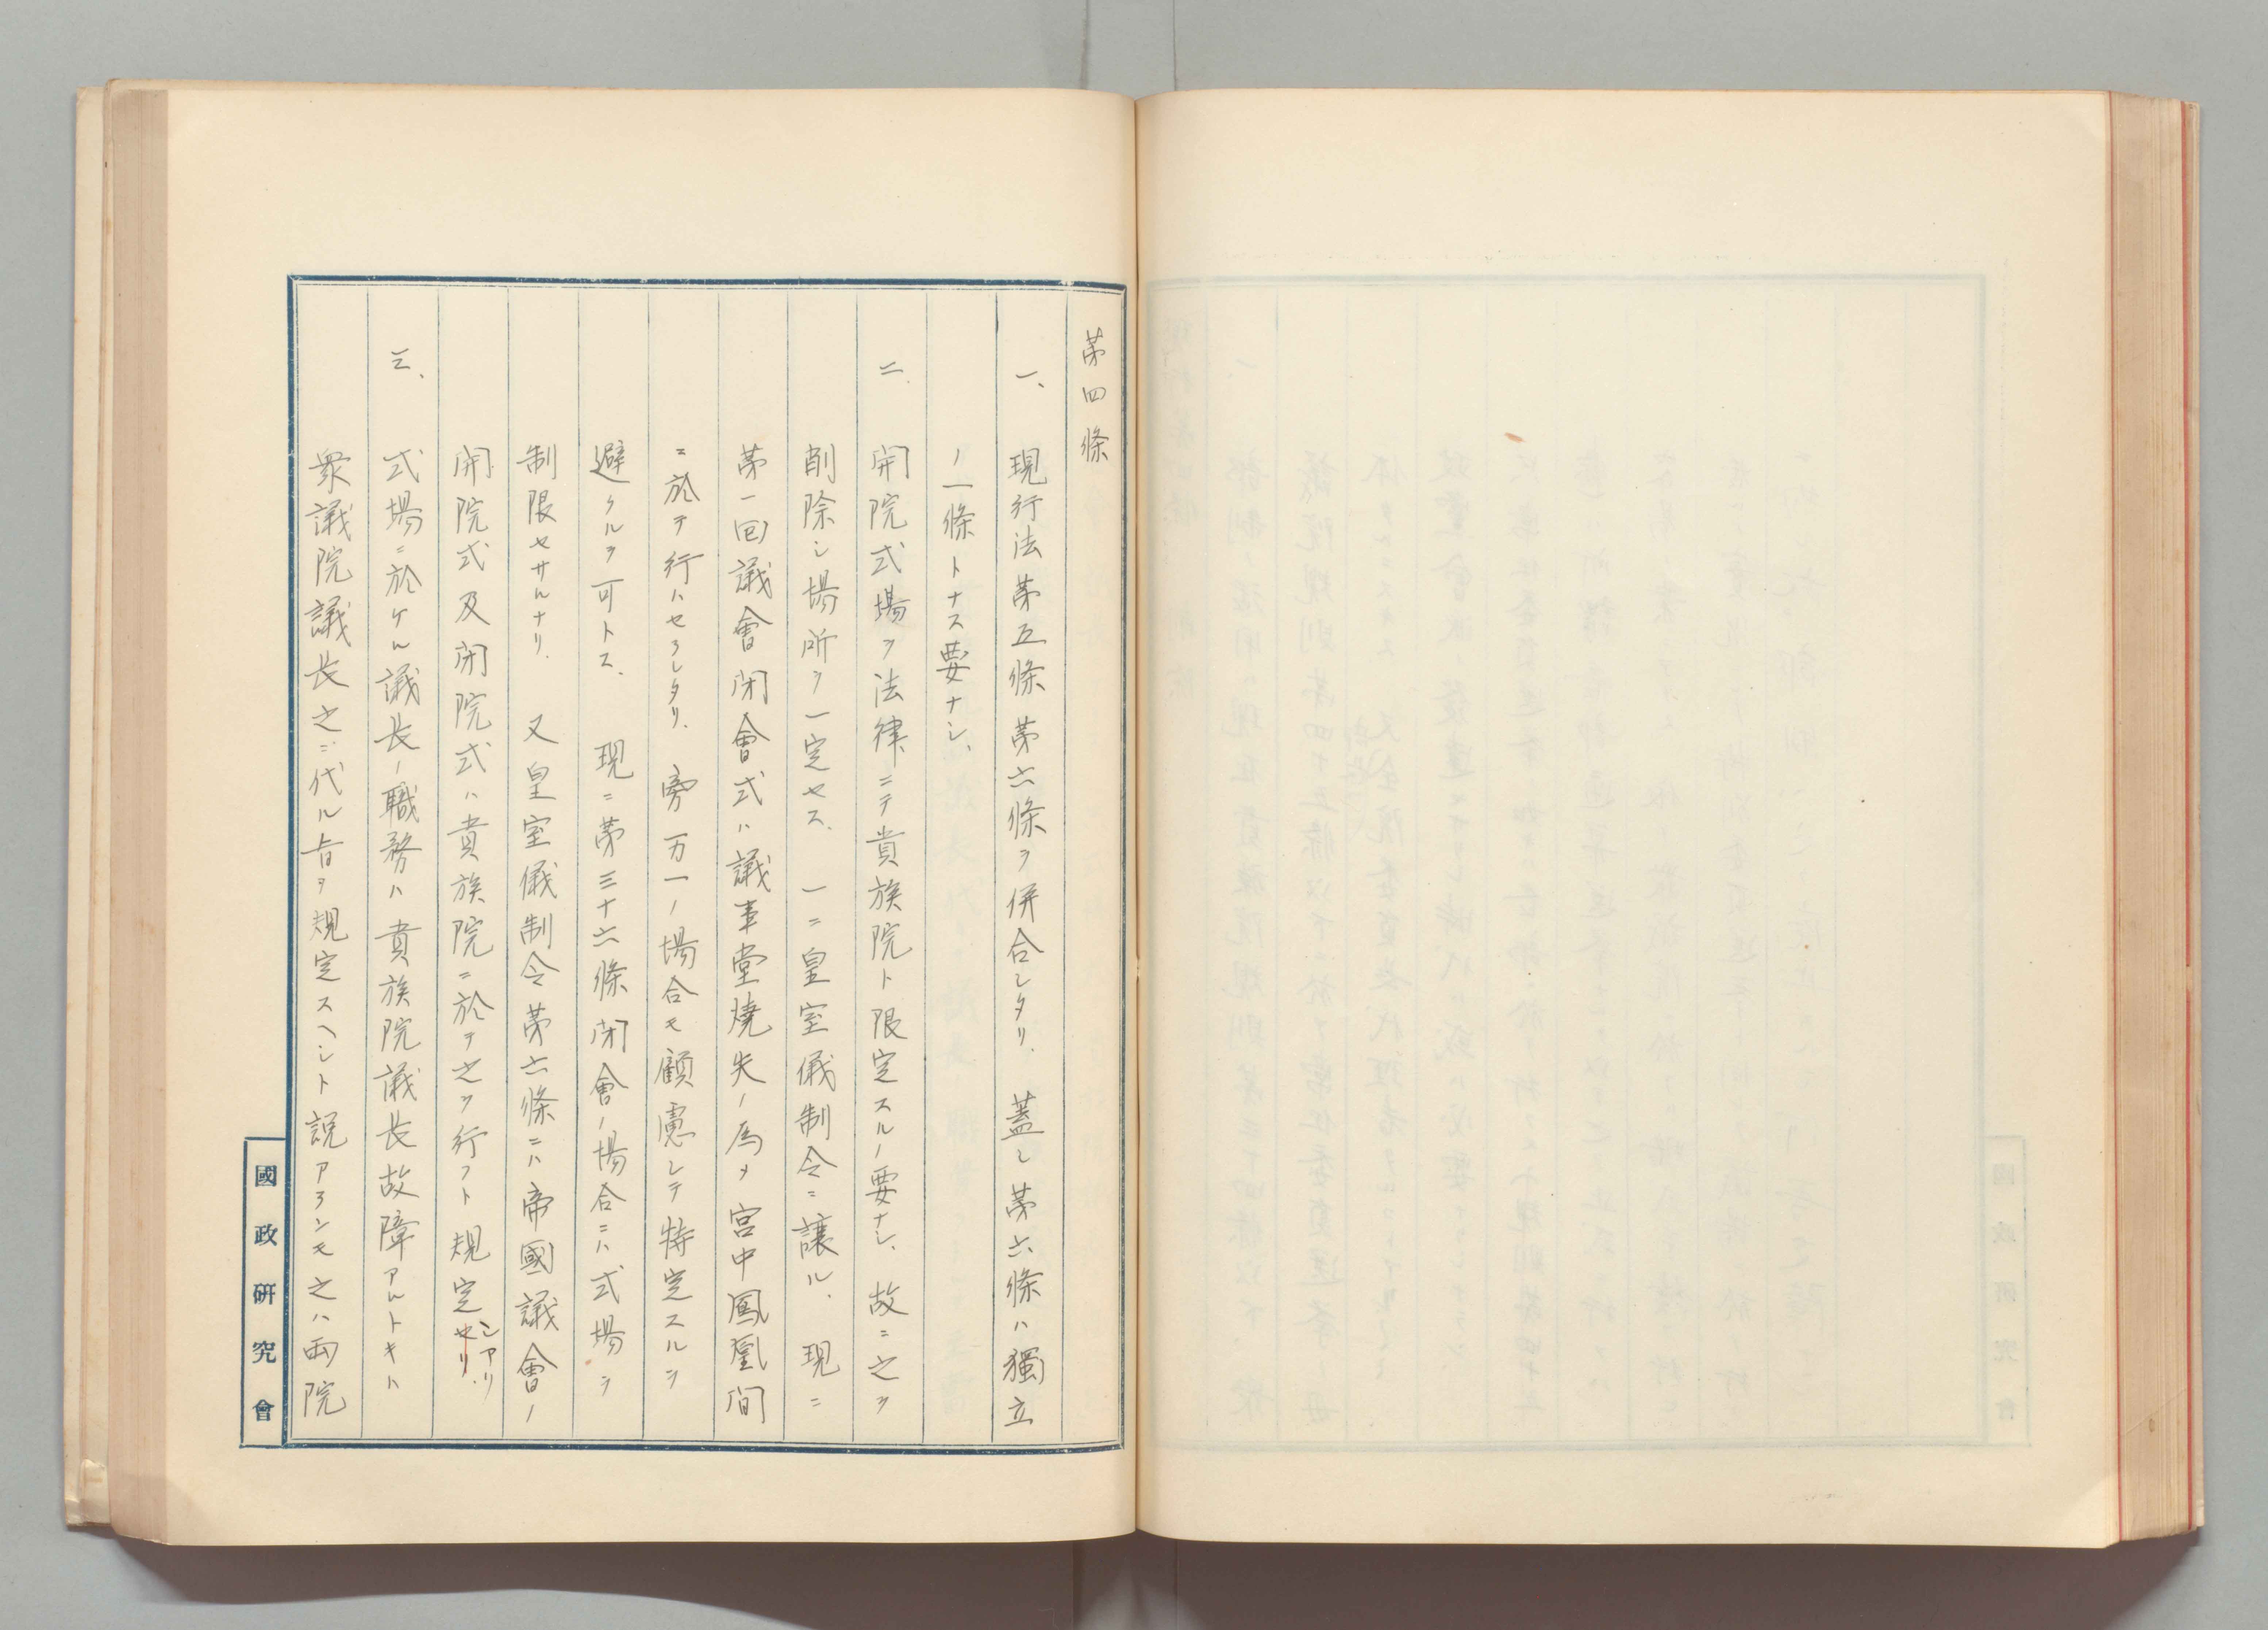 第四條
一、現行法第五條第六條ヲ併合シタリ、蓋シ第六條ハ獨立
ノ一條トナス要ナシ、
二、開院式場ヲ法律ニテ貴族院ト限定スルノ要ナシ、故ニ之ヲ
削除シ場所ヲ一定セス、一ニ皇室儀制令ニ讓ル、現ニ
第一回議會閉會式ハ議事堂燒失ノ為メ宮中鳳凰間
ニ於テ行ハセラレタリ、旁万一ノ場合モ顧慮シテ特定スルヲ
避クルヲ可トス、現ニ第三十六條閉會ノ場合ニハ式場ヲ
制限セサルナリ、又皇室儀制令第六條ニハ帝國議會ノ
開院式及閉院式ハ貴族院ニ於テ之ヲ行フト規定セリ、シアリ
三、式場ニ於ケル議長ノ職務ハ貴族院議長故障アルトキハ
衆議院議長之ニ代ル旨ヲ規定スヘシト説アランモ之ハ両院
國政研究會